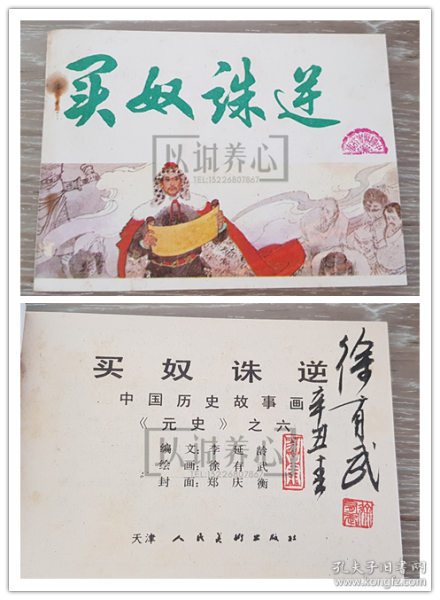 买奴诛逆
以诚养心
TEL:15226807867
买奴诛逆
中国历史故事画
《元史》之六
编文:李延龄
绘画:徐有武
封面:郑庆衡
天津人民美术出版社
徐有武
辛丑年
以诚养心
孔夫子旧书网
www.kongfz.com